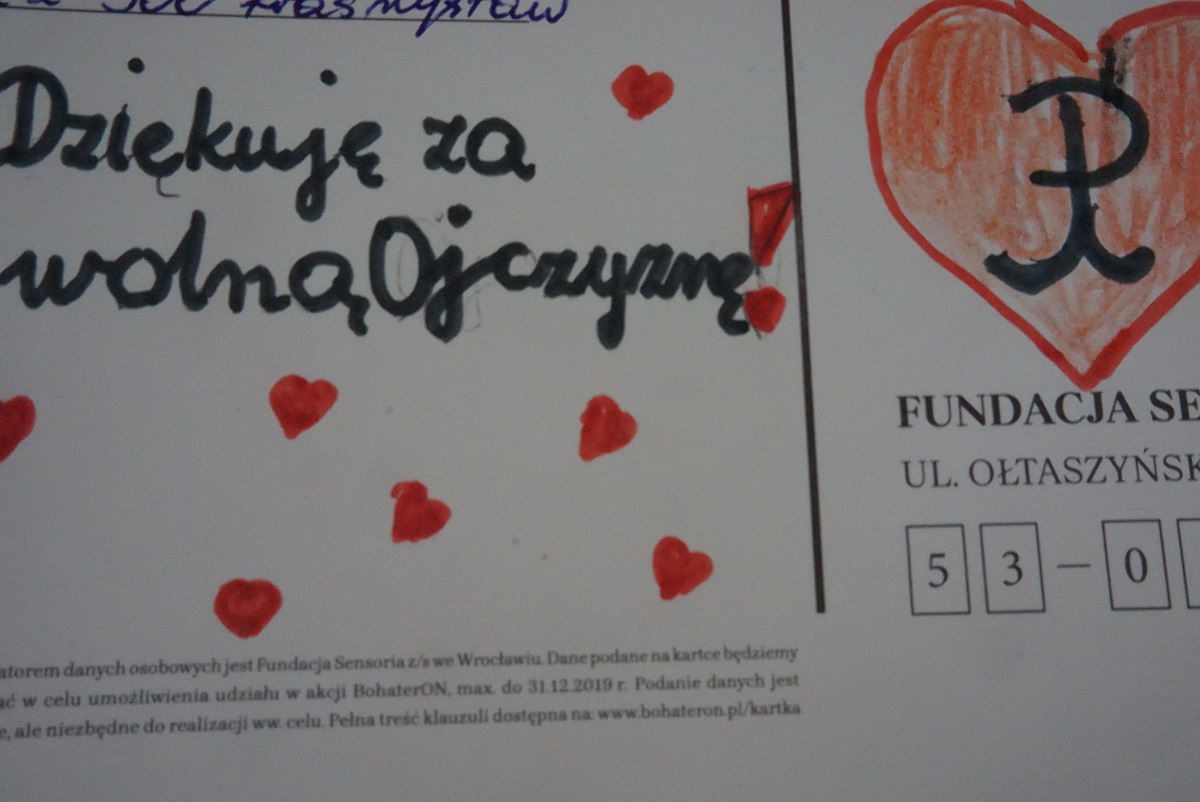 300 Krasnystaw
Dziękuję za
wolną Ojczyznę!
FUNDACJA SE
UL. OŁTASZYŃSK
53-0
atorem danych osobowych jest Fundacja Sensoria z/s we Wrocławiu. Dane podane na kartce będziemy
ać w celu umożliwienia udziału w akcji BohaterON, max. do 31.12.2019 r. Podanie danych jest
e, ale niezbędne do realizacji ww. celu. Pełna treść klauzuli dostępna na: www.bohateron.pl/kartka